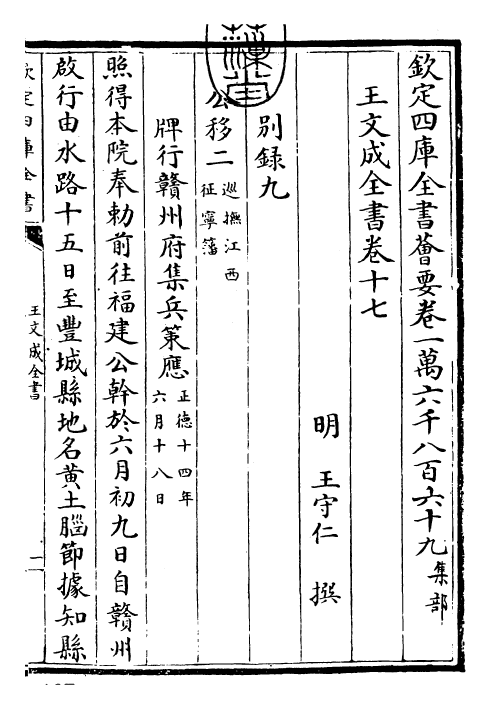 欽定四庫全書薈要卷一萬六千八百六十九集部
王文成全書卷十七
明 王守仁 撰
別錄九
公移二巡撫江西征寧藩
牌行贛州府集兵策應正德十四年六月十八日
照得本院奉勅前往福建公幹於六月初九日自贛州
啟行由水路十五日至豐城縣地名黄土腦節據知縣
欽定四庫全書
王文成全書
一